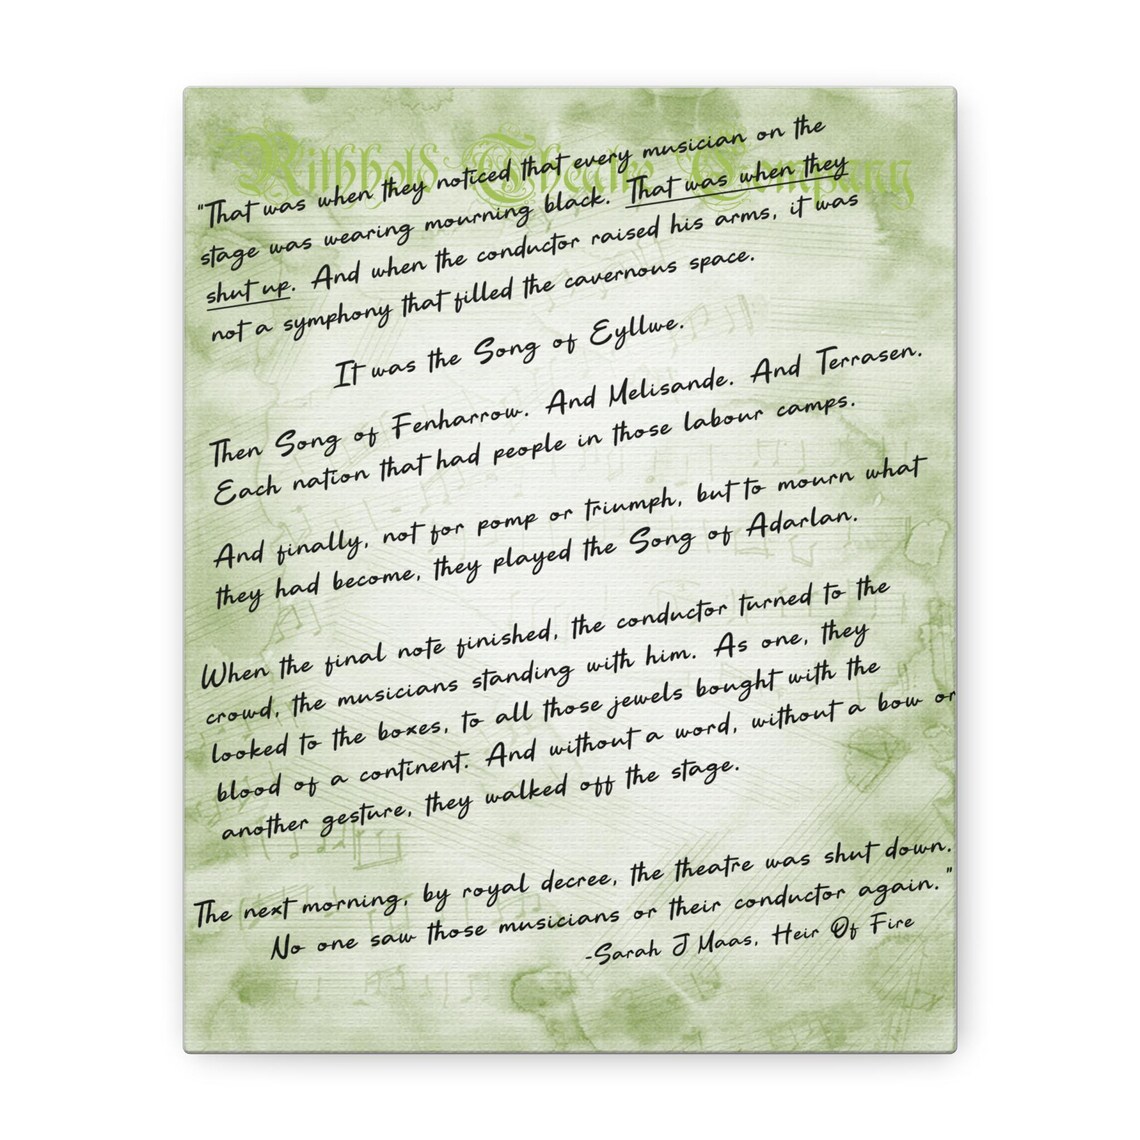 Rithbold Theatre Company
"That was when they noticed that every musician on the
stage was wearing mourning black. That was when they
shut up. And when the conductor raised his arms, it was
not a symphony that filled the cavernous space.
It was the Song of Eyllwe.
Then Song of Fenharrow. And Melisande. And Terrasen.
Each nation that had people in those labour camps.
And finally, not for pomp or triumph, but to mourn what
they had become, they played the Song of Adarlan.
When the final note finished, the conductor turned to the
crowd, the musicians standing with him. As one, they
looked to the boxes, to all those jewels bought with the
blood of a continent. And without a word, without a bow or
another gesture, they walked off the stage.
The next morning, by royal decree, the theatre was shut down.
No one saw those musicians or their conductor again."
-Sarah J Maas, Heir Of Fire